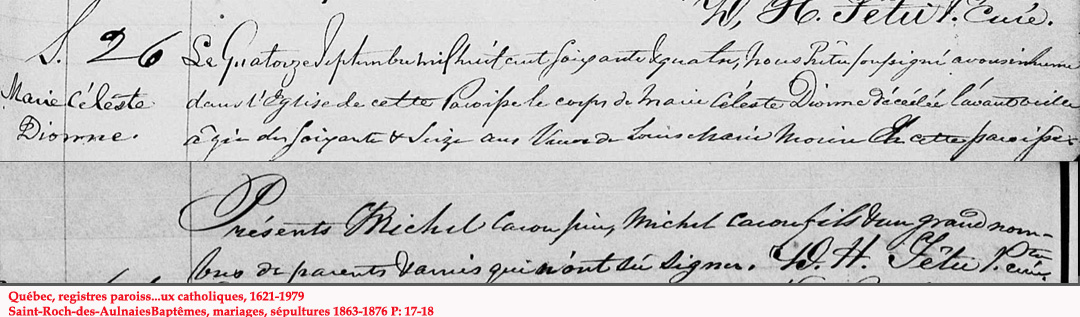 D. H. Têtu Ptre. Curé.
S. 26
Marie Céleste
Dionne.
Le Quatorze Septembre mil huit cent Soixante & quatre, nous Prêtre soussigné avons inhumé
dans l'Eglise de cette Paroisse le corps de Marie Céleste Dionne décédée l'avant veille
âgée de Soixante & Seize ans Veuve de Louis Marie Morin de cette paroisse.
Présents Michel Caron père, Michel Caron fils & un grand nom-
bre de parents & amis qui n'ont su signer. D. H. Têtu Ptre curé.
Québec, registres paroiss...ux catholiques, 1621-1979
Saint-Roch-des-AulnaiesBaptêmes, mariages, sépultures 1863-1876 P: 17-18